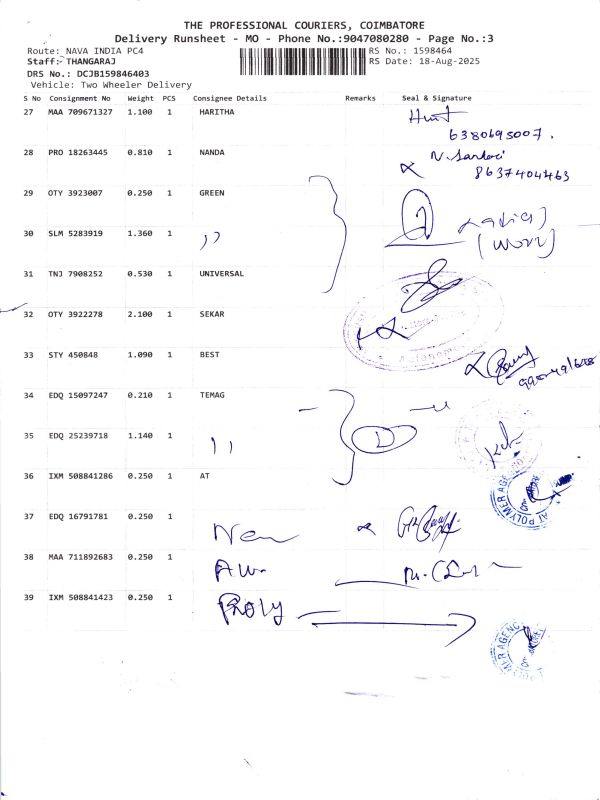 THE PROFESSIONAL COURIERS, COIMBATORE
Delivery Runsheet - MO - Phone No.:9047080280 - Page No.:3
Route: NAVA INDIA PC4 RS No.: 1598464
Staff:- THANGARAJ RS Date: 18-Aug-2025
DRS No.: DCJB159846403
Vehicle: Two Wheeler Delivery
S No Consignment No Weight PCS Consignee Details Remarks Seal & Signature
27 MAA 709671327 1.100 1 HARITHA
6380695007.
28 PRO 18263445 0.810 1 NANDA
8637404463
29 OTY 3923007 0.250 1 GREEN
30 SLM 5283919 1.360 1 ,,
31 TNJ 7908252 0.530 1 UNIVERSAL
32 OTY 3922278 2.100 1 SEKAR
33 STY 450848 1.090 1 BEST
34 EDQ 15097247 0.210 1 TEMAG
35 EDQ 25239718 1.140 1 ,,
36 IXM 508841286 0.250 1 AT
POLYMER AGENC
37 EDQ 16791781 0.250 1
38 MAA 711892683 0.250 1
39 IXM 508841423 0.250 1